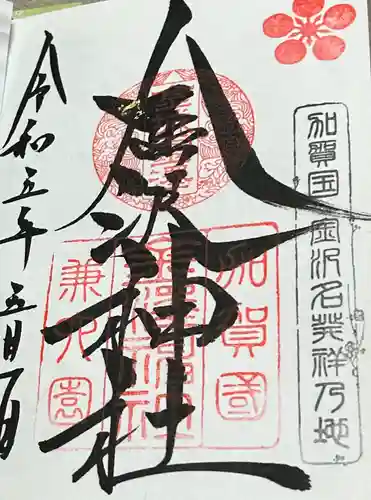 加賀国 金沢名発祥乃地
金澤神社
加賀國
金澤神社
兼六園
令和五年 五月一日